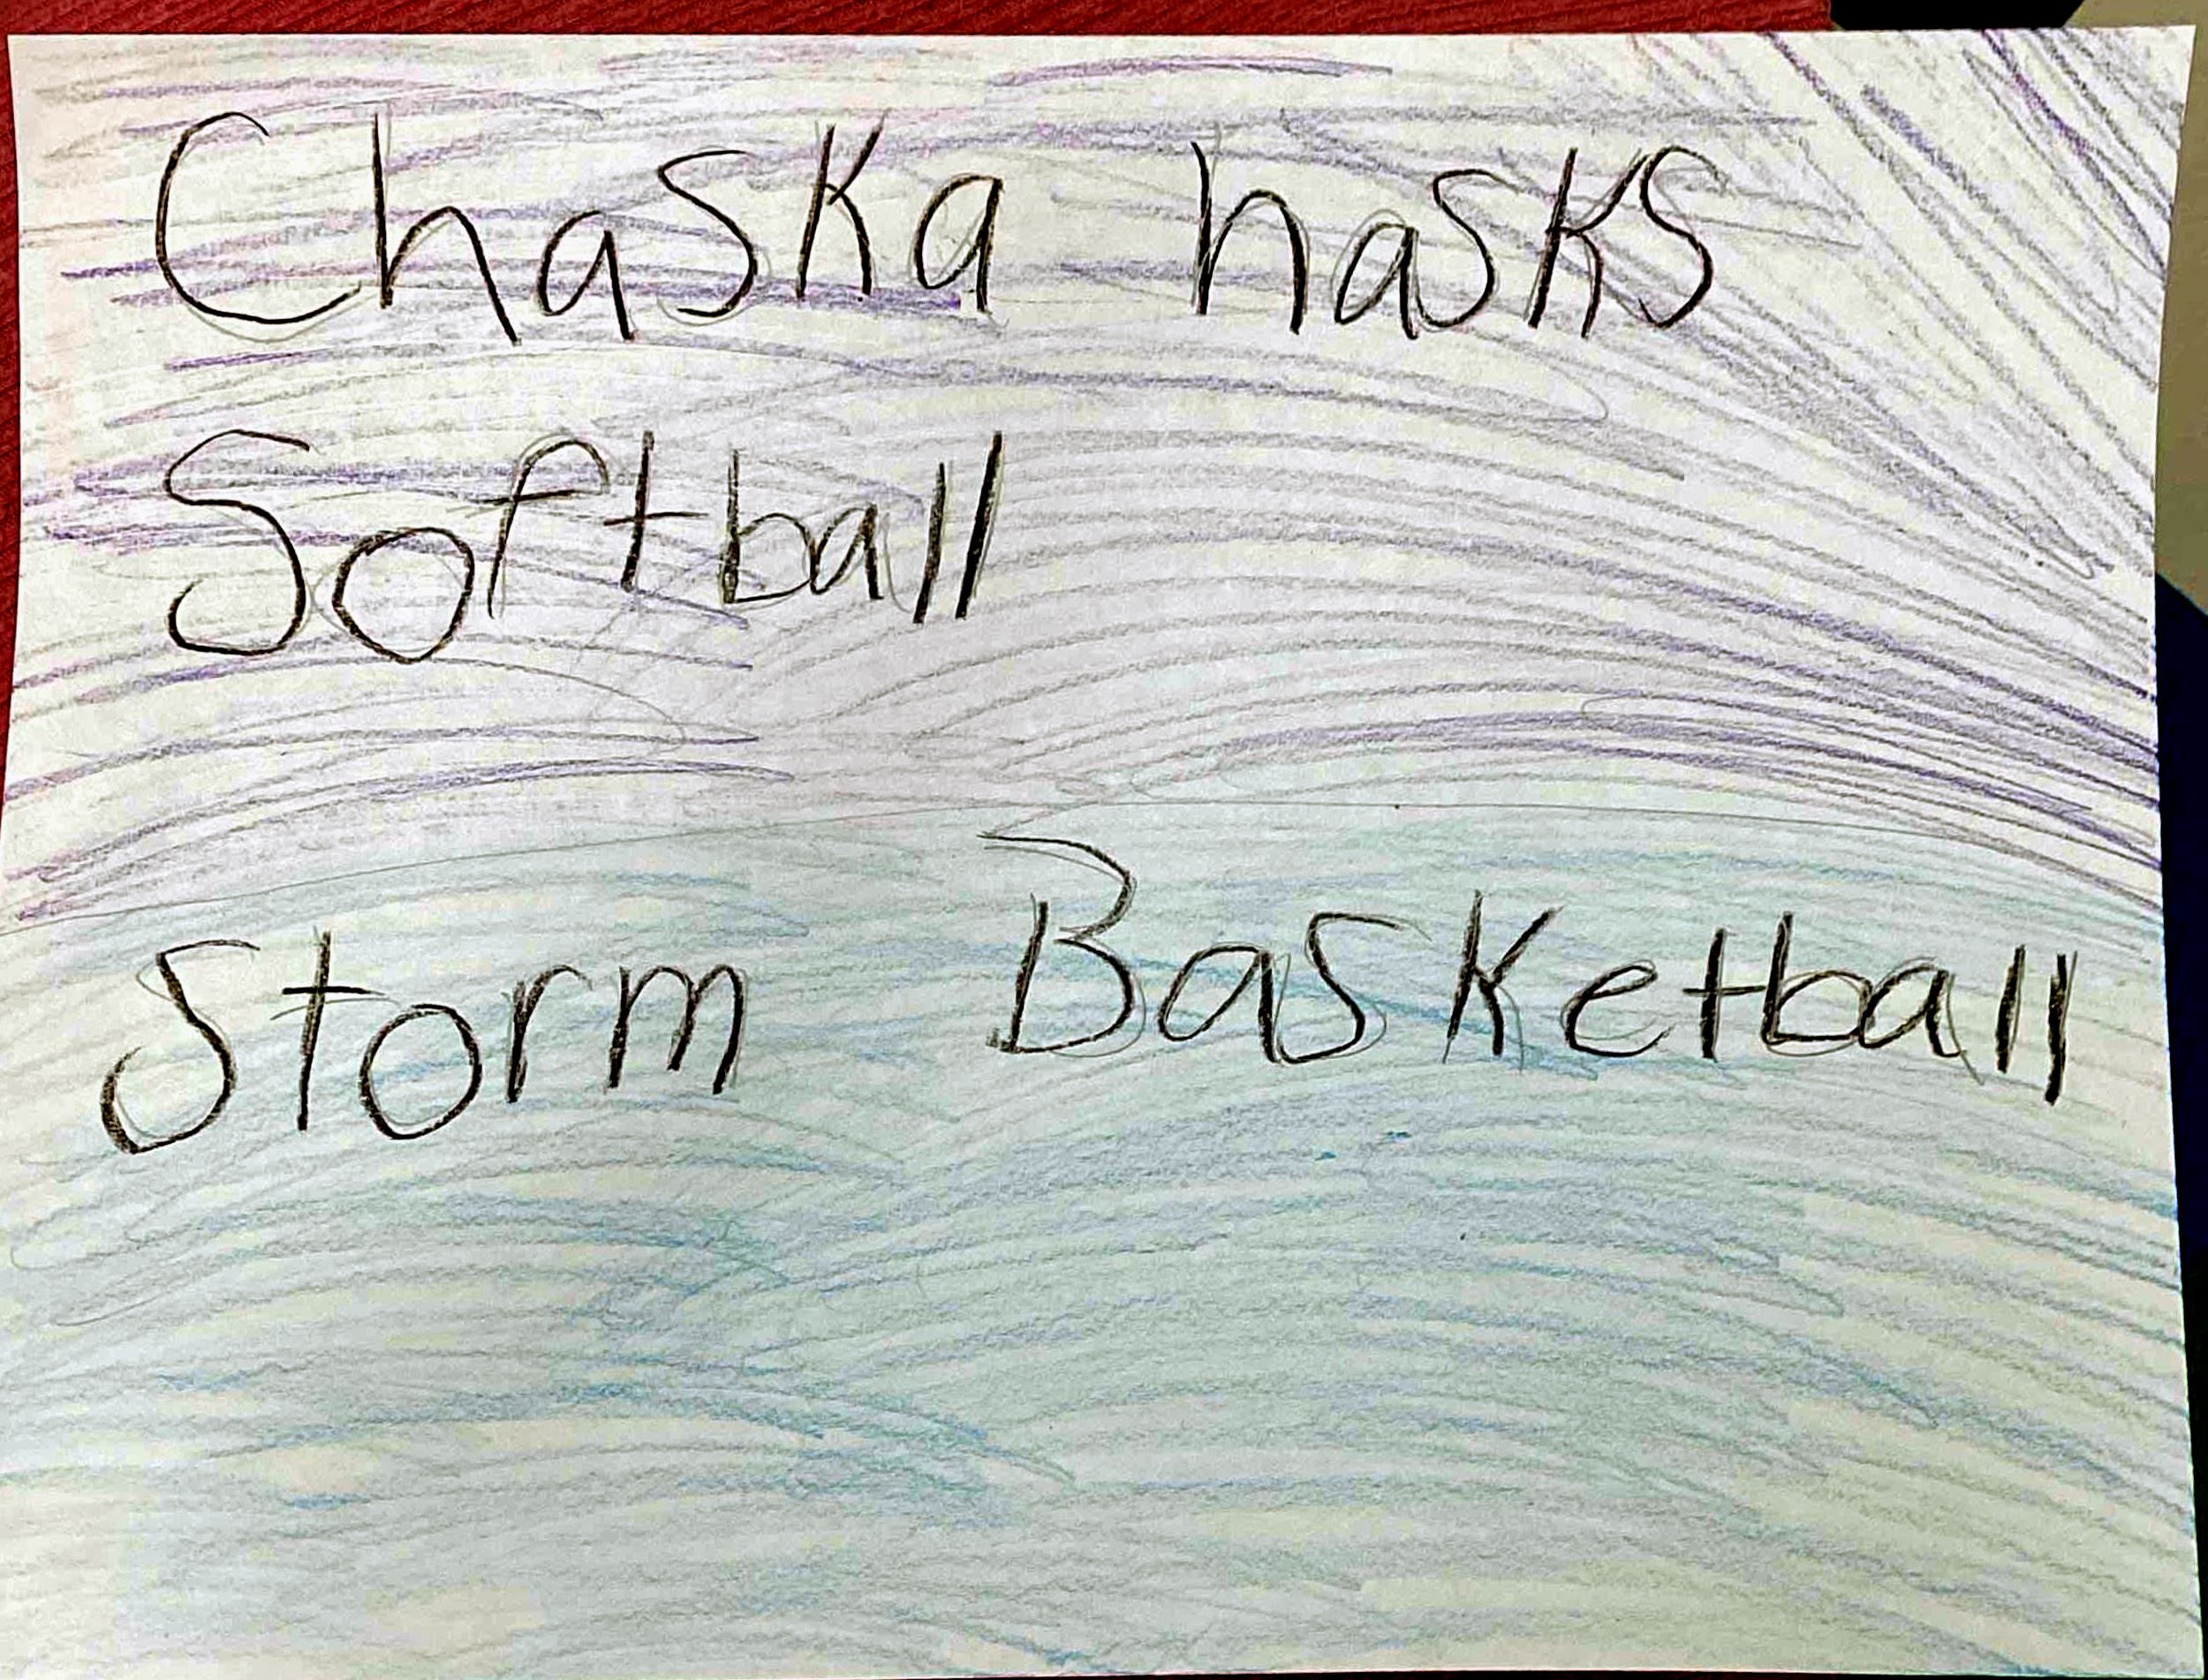 Chaska hasks
Softball
Storm Basketball